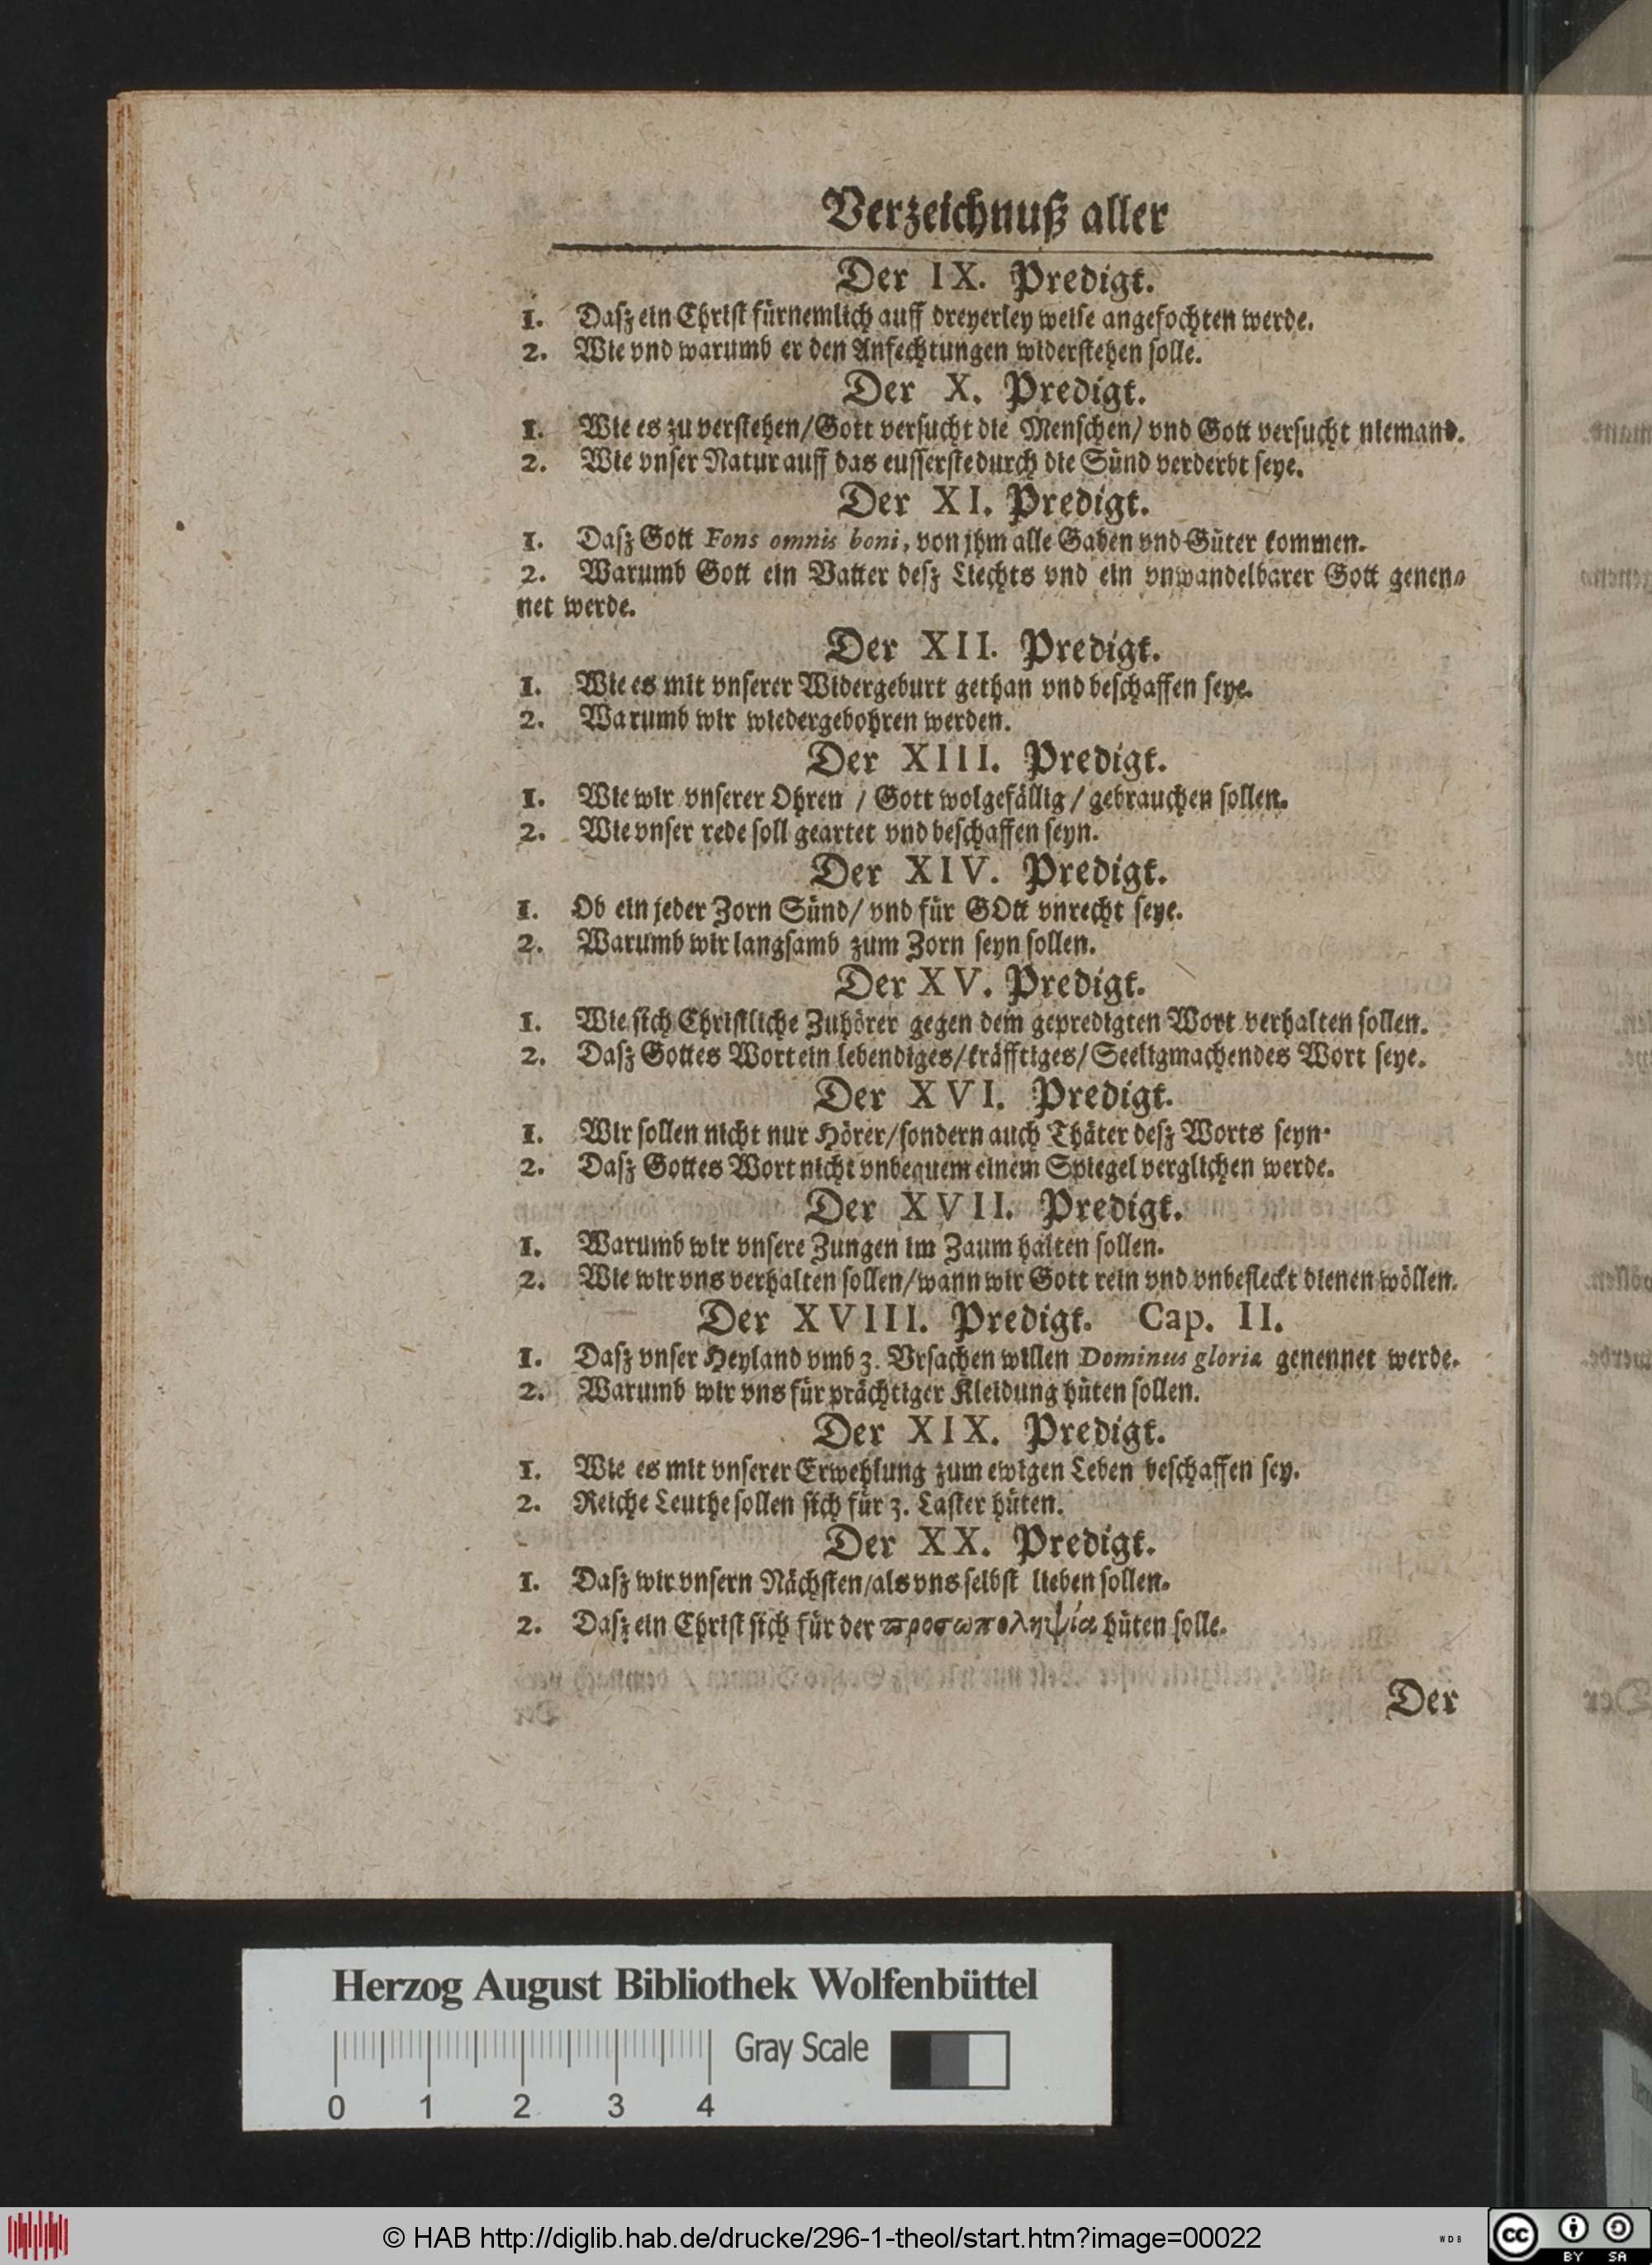 Verzeichnuß aller
Der IX. Predigt.
1. Daſz ein Chriſt fürnemlich auff dreyerley weiſe angefochten werde.
2. Wie vnd warumb er den Anfechtungen widerſtehen ſolle.
Der X. Predigt.
1. Wie es zu verſtehen/Gott verſucht die Menſchen/ vnd Gott verſucht niemand.
2. Wie vnſer Natur auff das euſſerſte durch die Sünd verderbt ſeye.
Der XI. Predigt.
1. Daſz Gott Fons omnis boni, von jhm alle Gaben vnd Güter kommen.
2. Warumb Gott ein Vatter deſz Liechts vnd ein vnwandelbarer Gott genen⸗
net werde.
Der XII. Predigt.
1. Wie es mit vnſerer Widergeburt gethan vnd beſchaffen ſeye.
2. Warumb wir wiedergebohren werden.
Der XIII. Predigt.
1. Wie wir vnſerer Ohren / Gott wolgefällig / gebrauchen ſollen.
2. Wie vnſer rede ſoll geartet vnd beſchaffen ſeyn.
Der XIV. Predigt.
1. Ob ein jeder Zorn Sünd/ vnd für GOtt vnrecht ſeye.
2. Warumb wir langſamb zum Zorn ſeyn ſollen.
Der XV. Predigt.
1. Wie ſich Chriſtliche Zuhörer gegen dem gepredigten Wort verhalten ſollen.
2. Daſz Gottes Wort ein lebendiges/kräfftiges/Seeligmachendes Wort ſeye.
Der XVI. Predigt.
1. Wir ſollen nicht nur Hörer/ſondern auch Thäter deſz Worts ſeyn.
2. Daſz Gottes Wort nicht vnbequem einem Spiegel verglichen werde.
Der XVII. Predigt.
1. Warumb wir vnſere Zungen im Zaum halten ſollen.
2. Wie wir vns verhalten ſollen/wann wir Gott rein vnd vnbefleckt dienen wöllen.
Der XVIII. Predigt. Cap. II.
1. Daſz vnſer Heyland vmb 3. Vrſachen willen Dominus gloriæ genennet werde.
2. Warumb wir vns für prächtiger Kleidung hüten ſollen.
Der XIX. Predigt.
1. Wie es mit vnſerer Erwehlung zum ewigen Leben beſchaffen ſey.
2. Reiche Leuthe ſollen ſich für 3. Laſter hüten.
Der XX. Predigt.
1. Daſz wir vnſern Nächſten/als vns ſelbſt lieben ſollen.
2. Daſz ein Chriſt ſich für der προσωποληψία hüten ſolle.
Der
Herzog August Bibliothek Wolfenbüttel
Gray Scale
0 1 2 3 4
© HAB http://diglib.hab.de/drucke/296-1-theol/start.htm?image=00022
WDB
cc BY SA